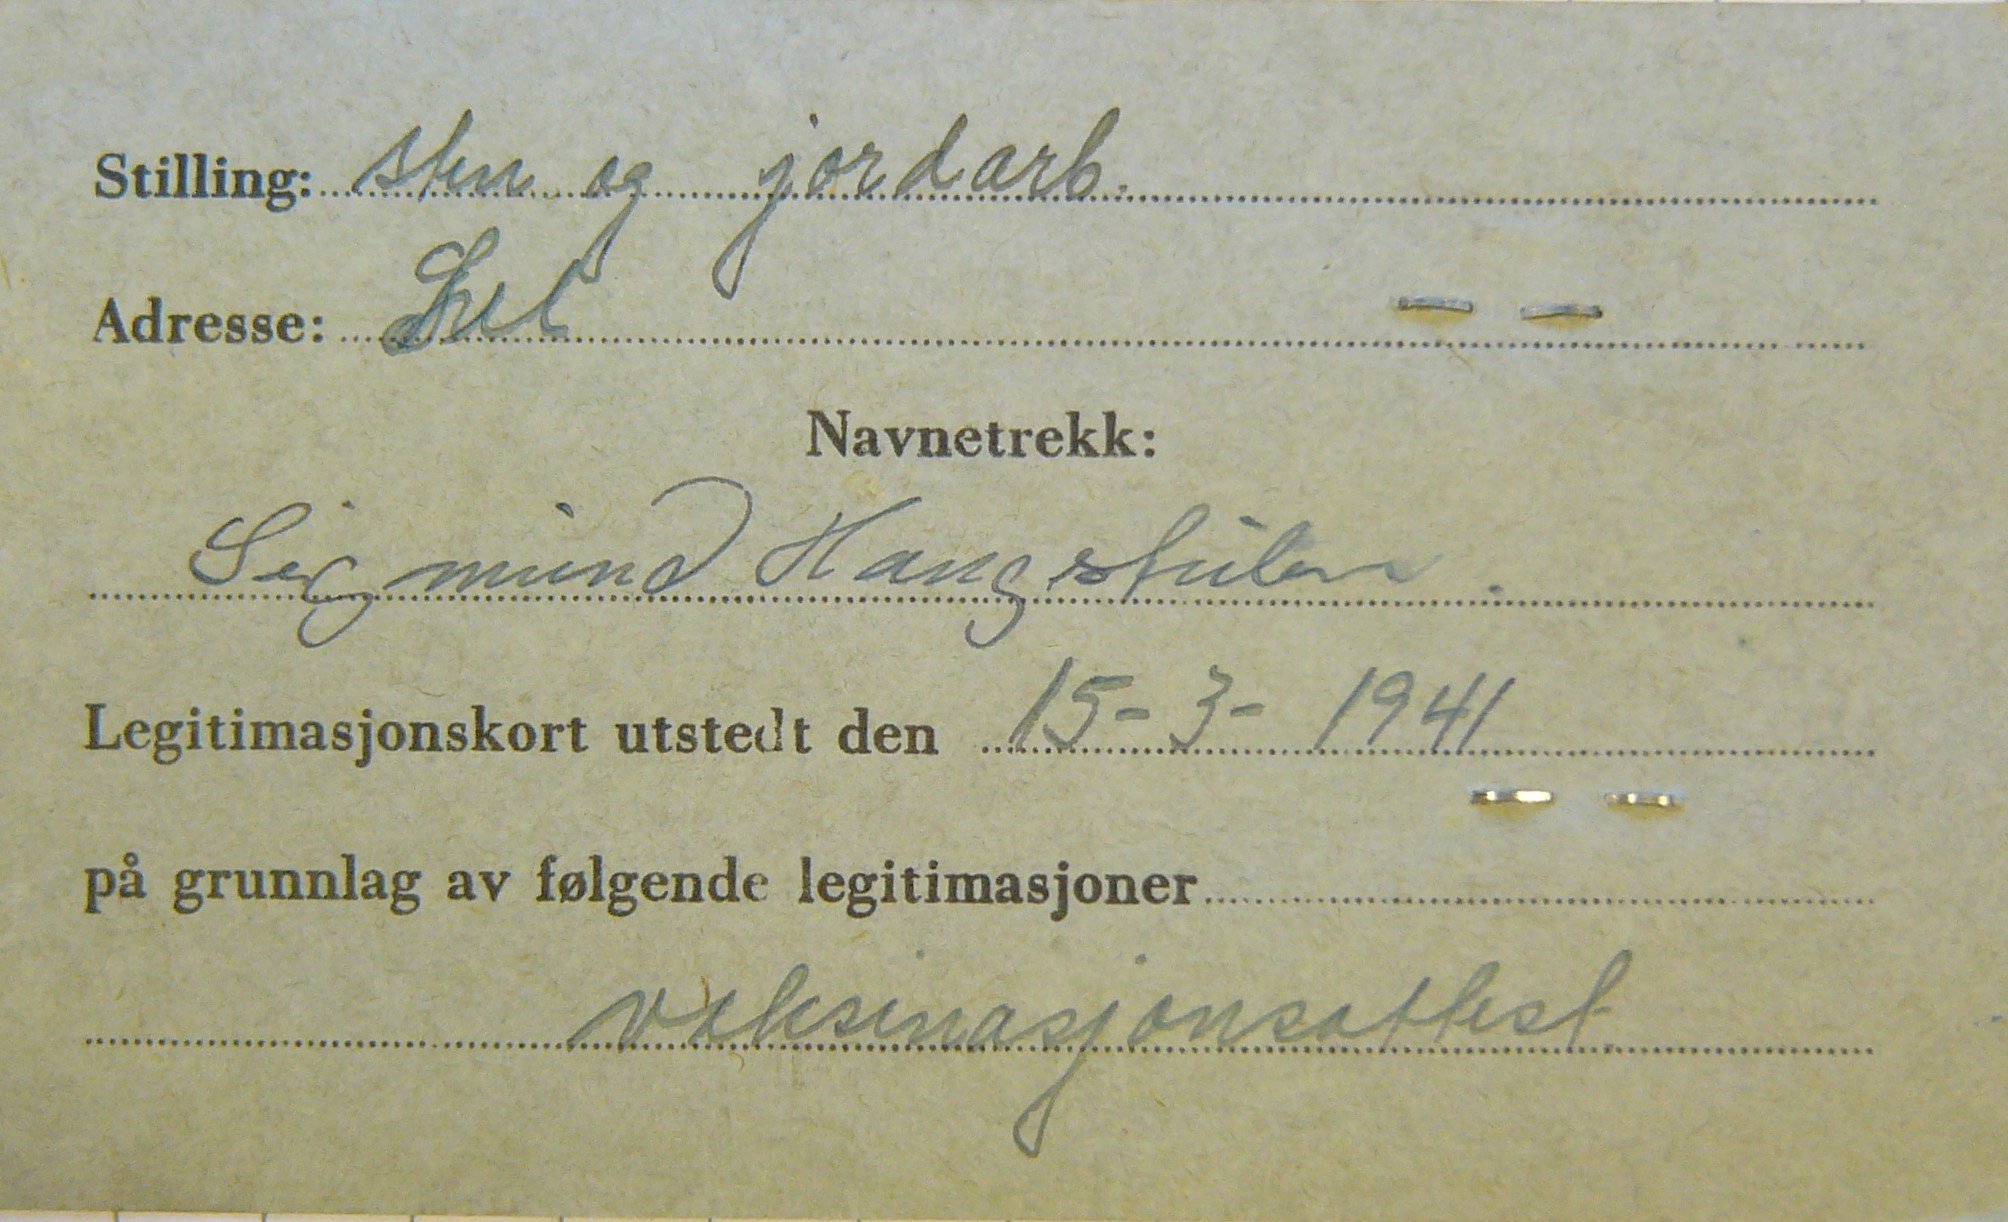 Stilling: sten og jordarb.
Adresse: Sel
Navnetrekk:
Sigmund Haugstulen.
Legitimasjonskort utstedt den 15-3-1941
på grunnlag av følgende legitimasjoner
vaksinasjonsattest